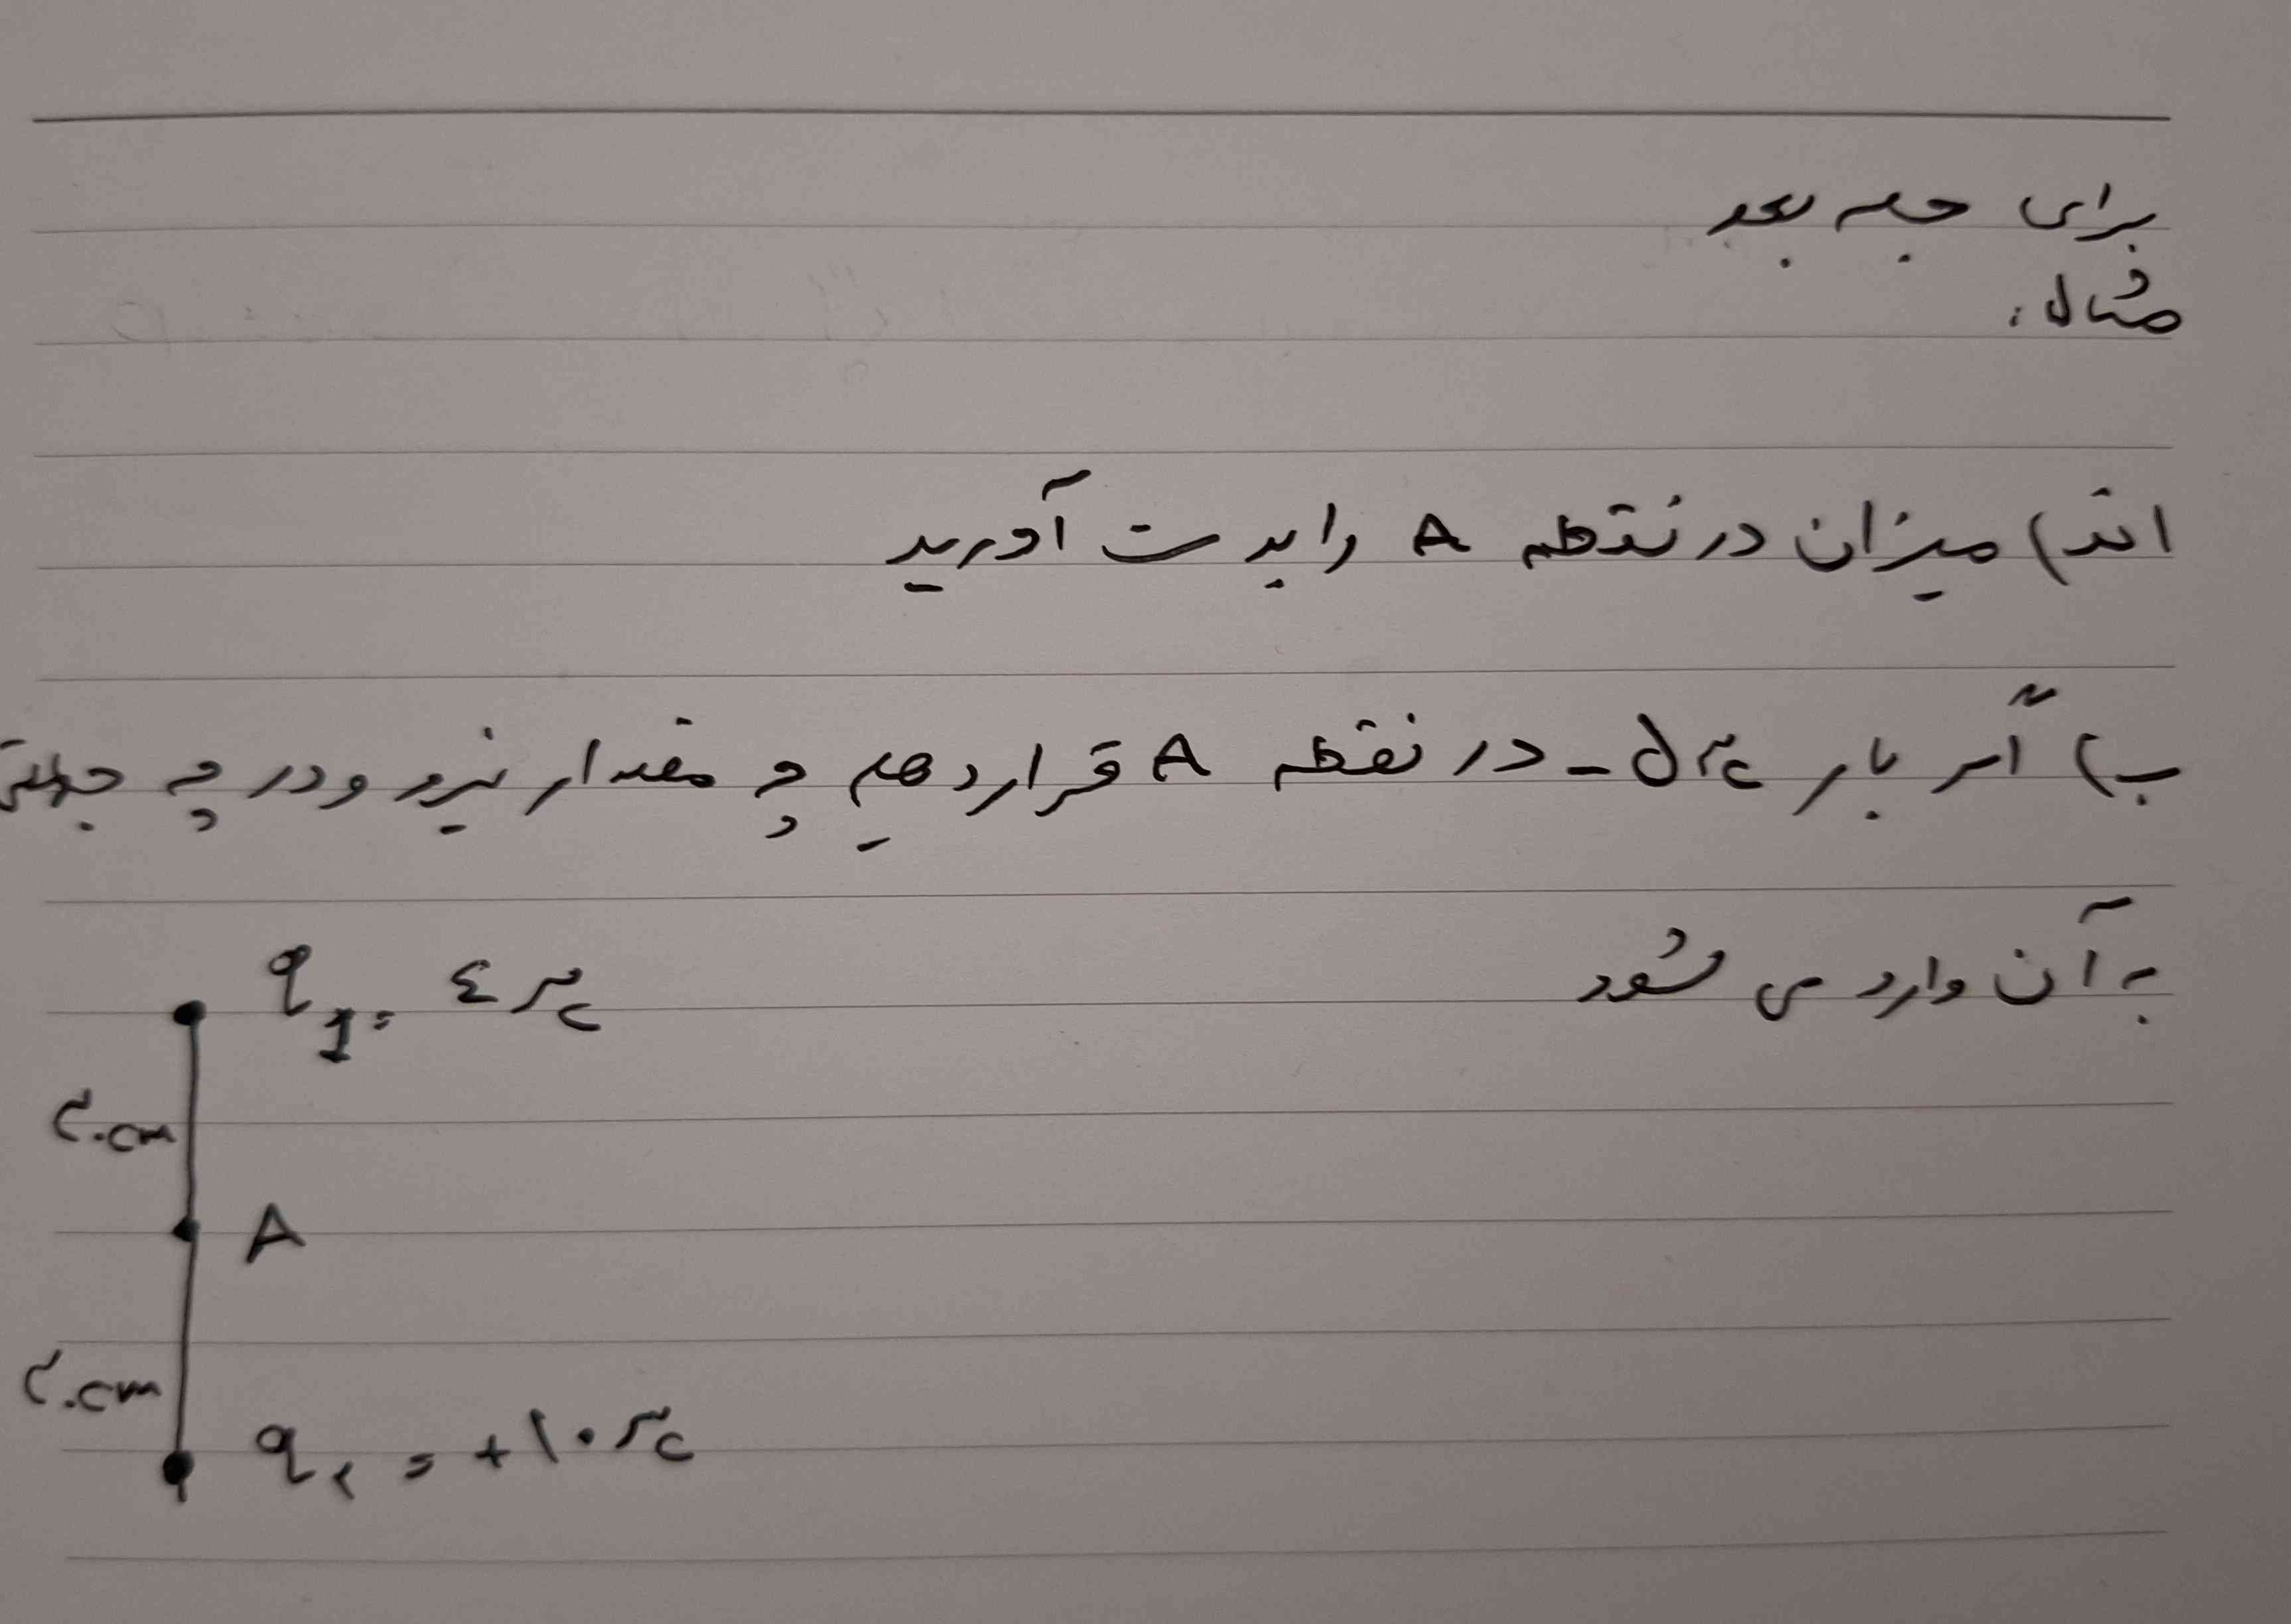 برای جلسه بعد
مثال:
الف) میزان در نقطه A را بدست آورید
ب) اگر بار ۵μc- در نقطه A قرار دهیم چه مقدار نیرو و در چه جهتی
به آن وارد می شود
q1 = ٤μc
۲۰cm
A
۲۰cm
q۲ = +۱۰μc